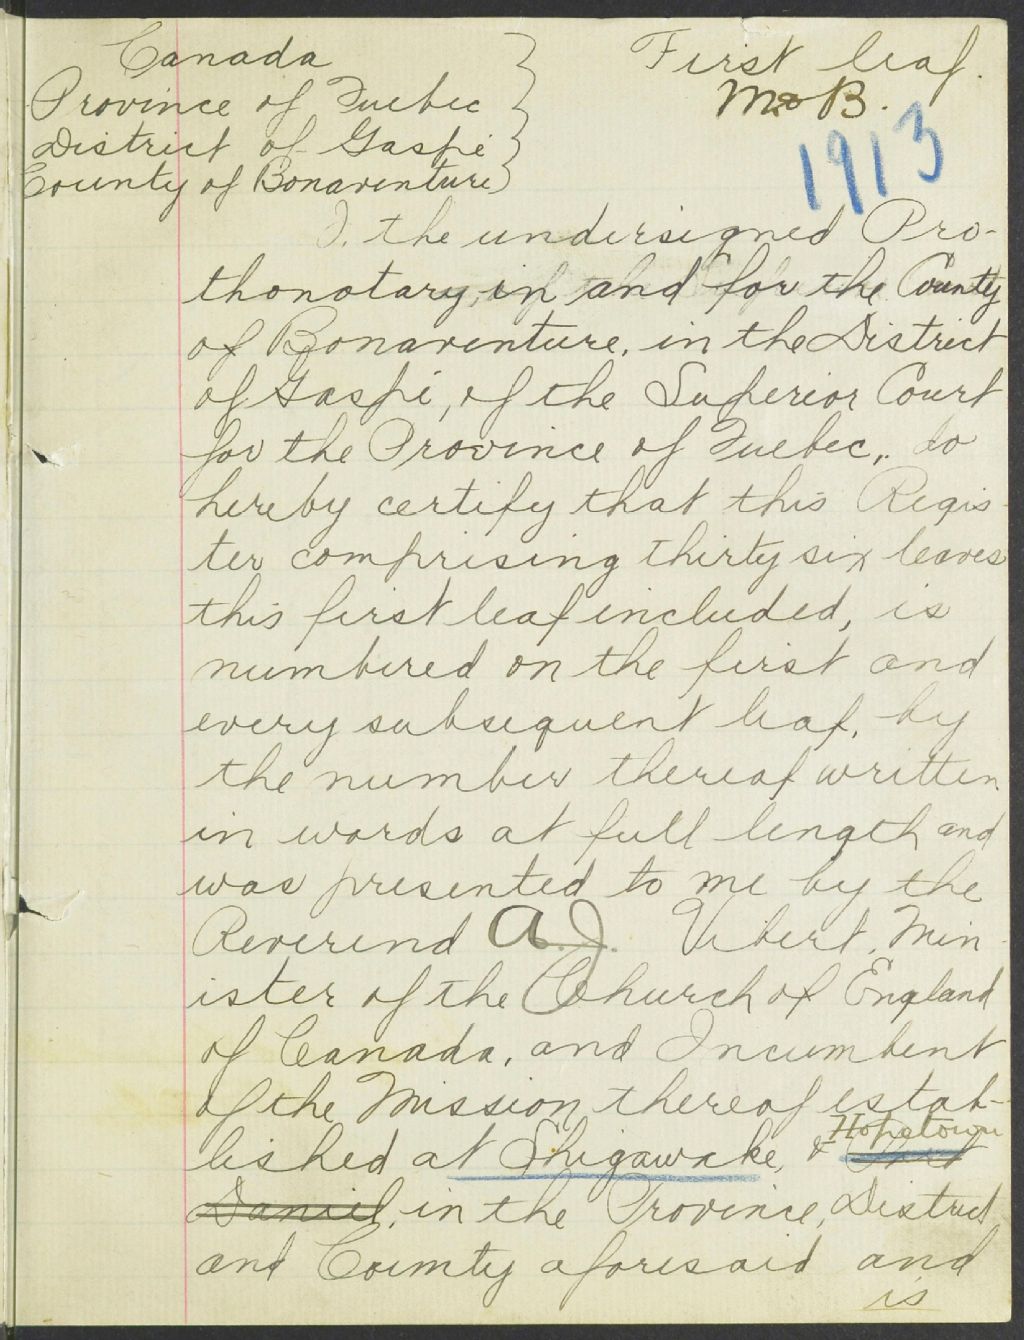 Canada
Province of Quebec
District of Gaspé
County of Bonaventure
First leaf.
M & B.
1913
I, the undersigned Pro-
thonotary, in and for the County
of Bonaventure, in the District
of Gaspé, of the Superior Court
for the Province of Quebec, do
hereby certify that this Regis-
ter comprising thirty six leaves
this first leaf included, is
numbered on the first and
every subsequent leaf, by
the number thereof written
in words at full length and
was presented to me by the
Reverend A. J. Vibert, Min-
ister of the Church of England
of Canada, and Incumbent
of the Mission thereof estab-
lished at Shigawake, & Hopetown
Port
Daniel, in the Province, District
and County aforesaid and
is